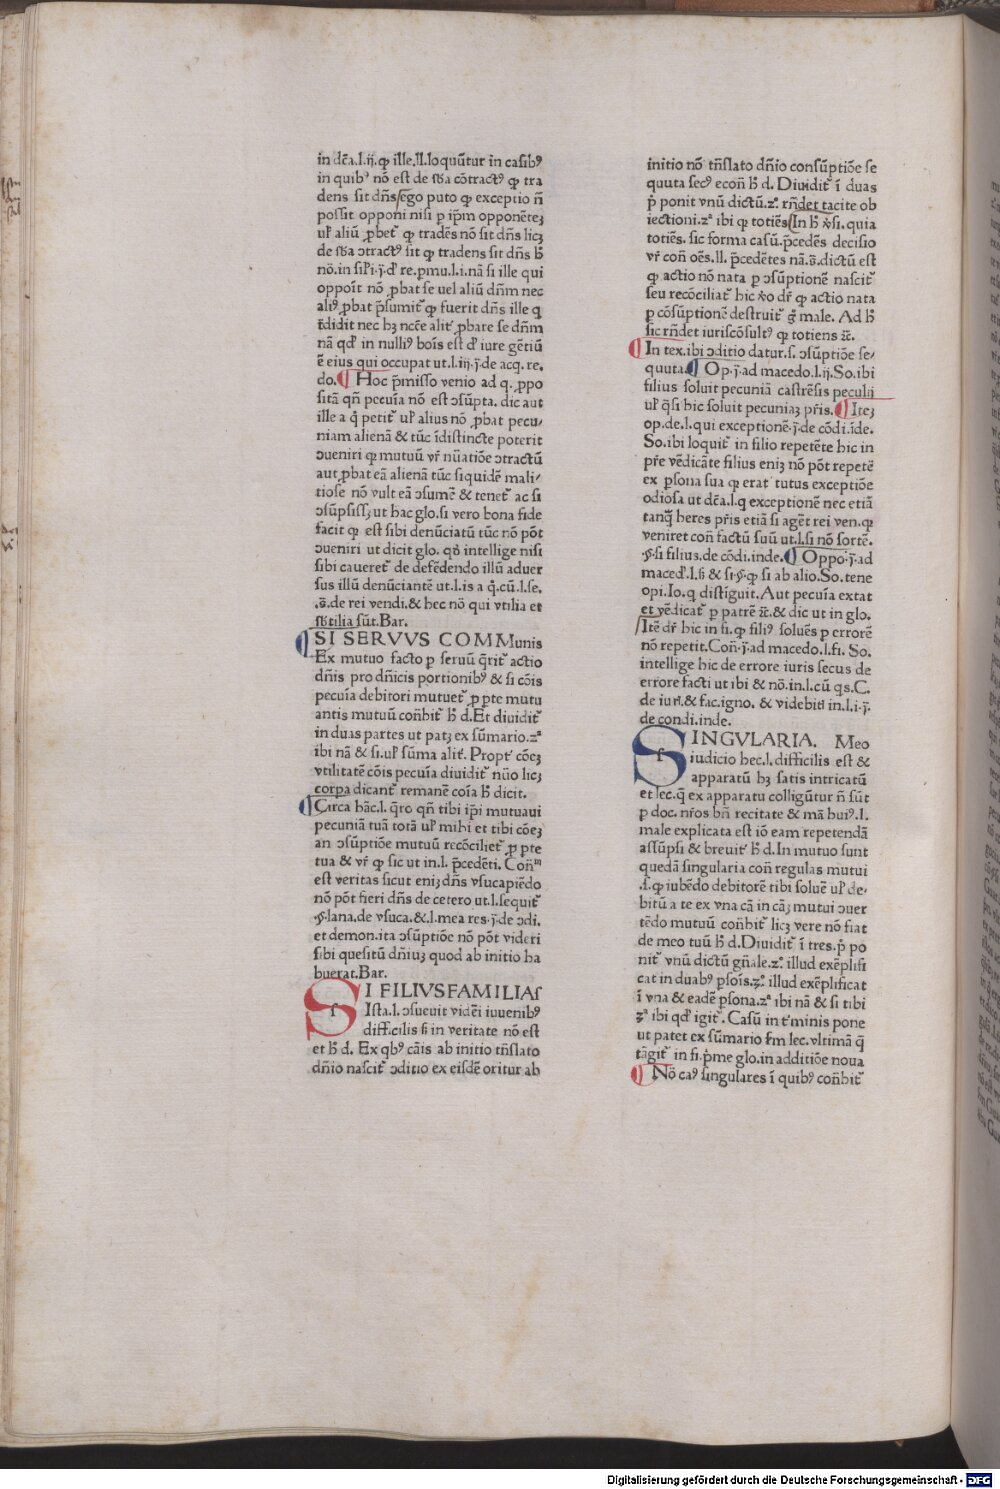 in dc̄a.l.ij.ꝙ ille.ll.loquūtur in casibꝰ
in quibꝰ nō est de sb̄a cōtractꝰ ꝙ tra
dens sit dn̄s ego puto ꝙ exceptio n̄
possit opponi nisi p ip̄m opponētez
ul' aliū ꝓbet᷑ ꝙ tradēs nō sit dn̄s licz
de sb̄a ↄtractꝰ sit ꝙ tradens sit dn̄s b̄
nō.in sil'i.j.d' re.pmu.l.i.nā si ille qui
oppoit nō ꝓbat se uel aliū dn̄m nec
aliꝰ ꝓbat p̄sumit᷑ ꝙ fuerit dn̄s ille q
t̄didit nec hz ncc̄e alit᷑ ꝓbare se dn̄m
nā qd' in nulliꝰ bois est d' iure gētiū
ē eius qui occupat ut.l.iij.j.de acq. re.
do. Hoc p̄misso venio ad q. ꝓpo
sitā qn̄ pecuīa nō est ↄsūpta. dic aut
ille a q̇ petit᷑ ul' alius nō ꝓbat pecu/
niam alienā & tūc īdistincte poterit
ↄueniri ꝙ mutuū vr̄ nūatiōe ↄtractū
aut ꝓbat eā alienā tūc siquidē mali/
tiose nō vult eā ↄsumē & tenet᷑ ac si
ↄsūpsissz ut hac glo.si vero bona fide
facit ꝙ est sibi denūciatū tūc nō pōt
ↄueniri ut dicit glo. qd̄ intellige nisi
sibi caueret᷑ de defēdendo illū aduer
sus illū denūciantē ut.l.is a q̇.cū.l.se.
.s̄.de rei vendi.& hec nō qui vtilia et
sb̄tilia sūt.Bar.
SI SERVVS COMMunis
Ex mutuo facto p seruū q̄rit᷑ actio
dn̄is pro dn̄icis portionibꝰ & si cōis
pecuīa debitori mutuet᷑ ꝓ pte mutu
antis mutuū con̄bit᷑ b̄ d.Et diuidit᷑
in duas partes ut patz ex sūmario.2ᵃ
ibi nā & si.ul' sūma alit᷑. Propt᷑ cōez
vtilitatē cōis pecuīa diuidit᷑ nūo licz
corpa dicant᷑ remanē coīa b̄ dicit.
Circa hāc.l. q̄ro qn̄ tibi ip̄i mutuaui
pecuniā tuā totā ul' mihi et tibi cōez
an ↄsūptiōe mutuū recōciliet᷑ ꝓ pte
tua & vr̄ ꝙ sic ut in.l. p̄cedēti. Con̄ᵐ
est veritas sicut eniz dn̄s vsucapiēdo
nō pōt fieri dn̄s de cetero ut.l.sequit᷑
.§.lana.de vsuca.&.l.mea res.j.de ↄdi.
et demon.ita ↄsūptiōe nō pōt videri
sibi quesitū dn̄iuz quod ab initio ha
buerat.Bar.
SI FILIVSFAMILIAS
Ista.l. ↄsueuit vidēi iuuenibꝰ
difficilis si in veritate nō est
et b̄ d. Ex qbꝰ cāis ab initio tn̄slato
dn̄io nascit᷑ ↄditio ex eisdē oritur ab
initio nō tn̄slato dn̄io consūptiōe se
quuta secꝰ econ̄ b̄ d. Diuidit᷑ ī duas
p̄ ponit vnū dictū.2ᵒ. rn̄det tacite ob
iectioni.2ᵃ ibi ꝙ totiēs In b̄ v̄si. quia
totiēs. sic forma casū.p̄cedēs decisio
vr̄ con̄ oēs.ll. p̄cedētes nā.s̄.dictū est
ꝙ actio nō nata p ↄsūptionē nascit᷑
seu recōciliat᷑ hic v̄o dr̄ ꝙ actio nata
p cōsūptionē destruit᷑ g̊ male. Ad b̄
sic rn̄det iuriscōsultꝰ ꝙ totiens ⁊c̄.
In tex.ibi ↄditio datur.s. ↄsūptiōe se/
quuta. Op.j.ad macedo.l.ij.So.ibi
filius soluit pecuniā castrēsis peculij
ul' q̄si hic soluit pecuniaz pr̄is. Itez
op.de.l.qui exceptionē.j.de cōdi.īde.
So.ibi loquit᷑ in filio repetēte hic in
pr̄e vēdicāte filius eniz nō pōt repetē
ex ꝑsona sua ꝙ erat᷑ tutus exceptiōe
odiosa ut dc̄a.l.q exceptionē nec etiā
tanq̄ heres pr̄is etiā si aget᷑ rei ven.ꝙ
veniret con̄ factū suū ut.l.si nō sortē.
.§.si filius.de cōdi.inde. Oppo.j.ad
maced'.l.fi & si.§.ꝙ si ab alio.So.tene
opi.Io.q distiguit.Aut pecuīa extat
et vēdicat᷑ p patrē ⁊c̄.& dic ut in glo.
Itē dr̄ hic in fi.ꝙ filiꝰ soluēs p errorē
nō repetit.Con̄.j.ad macedo.l.fi. So.
intellige hic de errore iuris secus de
errore facti ut ibi & nō.in.l.cū qs.C.
de iur̄.& fac.igno. & videbit᷑ in.l.i.j.
de condi.inde.
SINGVLARIA. Meo
iudicio hec.l. difficilis est &
apparatū hz satis intricatū
et lec.q ex apparatu colligūtur n̄ sūt
p doc. nr̄os bn̄ recitate & mā huiꝰ.l.
male explicata est iō eam repetendā
assūpsi & breuit᷑ b̄ d.In mutuo sunt
quedā singularia con̄ regulas mutui
.s.ꝙ iubēdo debitorē tibi soluē ul' de/
bitū a te ex vna cā in cāz mutui ↄuer
tēdo mutuū con̄bit᷑ licz vere nō fiat
de meo tuū b̄ d.Diuidit᷑ ī tres.p̄ po
nit᷑ vnū dictū gn̄ale.2ᵒ. illud exēplifi
cat in duabꝰ ꝑsois.3ᵒ. illud exēplificat
ī vna & eadē ꝑsona.2ᵃ ibi nā & si tibi
3ᵃ ibi qd' igit᷑. Casū in t᷑minis pone
ut patet ex sūmario s̄m lec. vltimā q̄
tāgit᷑ in fi.p̄me glo.in additiōe noua
Nō caꝰ singulares ī quibꝰ con̄bit᷑
Digitalisierung gefördert durch die Deutsche Forschungsgemeinschaft - DFG